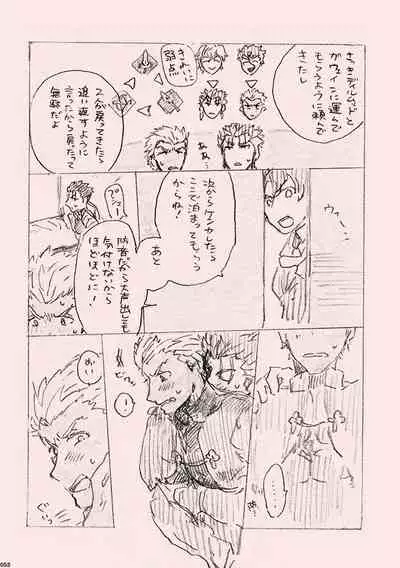 さっきディルムッドと
ガウェインに運んで
もらうように頼んで
きたし
きれいに
弱点
2人が戻ってきたら
追い返すように
言ったから戻たって
無駄だよ
ああ〜
ウィーン
次からケンカしたら
ここで泊まってもらう
からね!
あと
防音だから大声出しても
気付けないから
ほどほどに!
プシュー
!
ぐいっ
……